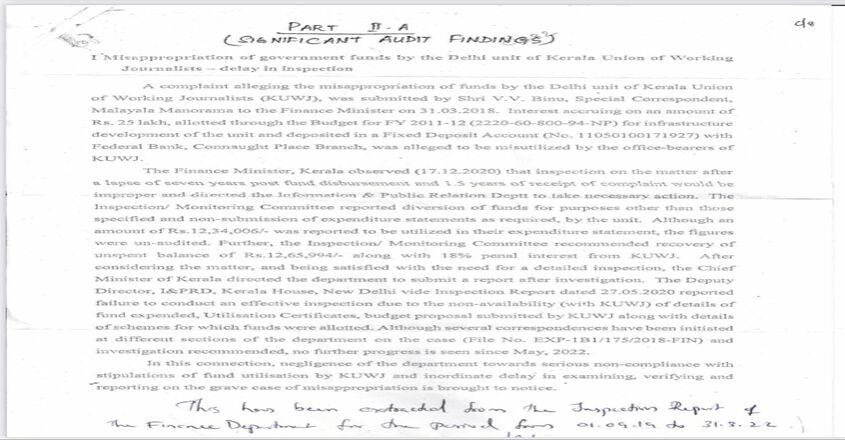 PART II-A
(SIGNIFICANT AUDIT FINDINGS)
I Misappropriation of government funds by the Delhi unit of Kerala Union of Working
Journalists – delay in inspection
A complaint alleging the misappropriation of funds by the Delhi unit of Kerala Union
of Working Journalists (KUWJ), was submitted by Shri V.V. Binu, Special Correspondent,
Malayala Manorama to the Finance Minister on 31.03.2018. Interest accruing on an amount of
Rs. 25 lakh, allotted through the Budget for FY 2011-12 (2220-60-800-94-NP) for infrastructure
development of the unit and deposited in a Fixed Deposit Account (No. 11050100171927) with
Federal Bank, Connaught Place Branch, was alleged to be misutilized by the office-bearers of
KUWJ.
The Finance Minister, Kerala observed (17.12.2020) that inspection on the matter after
a lapse of seven years post fund disbursement and 1.5 years of receipt of complaint would be
improper and directed the Information & Public Relation Deptt to take necessary action. The
Inspection/ Monitoring Committee reported diversion of funds for purposes other than those
specified and non-submission of expenditure statements as required, by the unit. Although an
amount of Rs.12,34,006/- was reported to be utilized in their expenditure statement, the figures
were un-audited. Further, the Inspection/ Monitoring Committee recommended recovery of
unspent balance of Rs.12,65,994/- along with 18% penal interest from KUWJ. After
considering the matter, and being satisfied with the need for a detailed inspection, the Chief
Minister of Kerala directed the department to submit a report after investigation. The Deputy
Director, I&PRD, Kerala House, New Delhi vide Inspection Report dated 27.05.2020 reported
failure to conduct an effective inspection due to the non-availability (with KUWJ) of details of
fund expended, Utilisation Certificates, budget proposal submitted by KUWJ along with details
of schemes for which funds were allotted. Although several correspondences have been initiated
at different sections of the department on the case (File No. EXP-1B1/175/2018-FIN) and
investigation recommended, no further progress is seen since May, 2022.
In this connection, negligence of the department towards serious non-compliance with
stipulations of fund utilisation by KUWJ and inordinate delay in examining, verifying and
reporting on the grave case of misappropriation is brought to notice.
This has been extracted from the Inspection Report of
the Finance Department for the period from 01.09.19 to 31.3.22